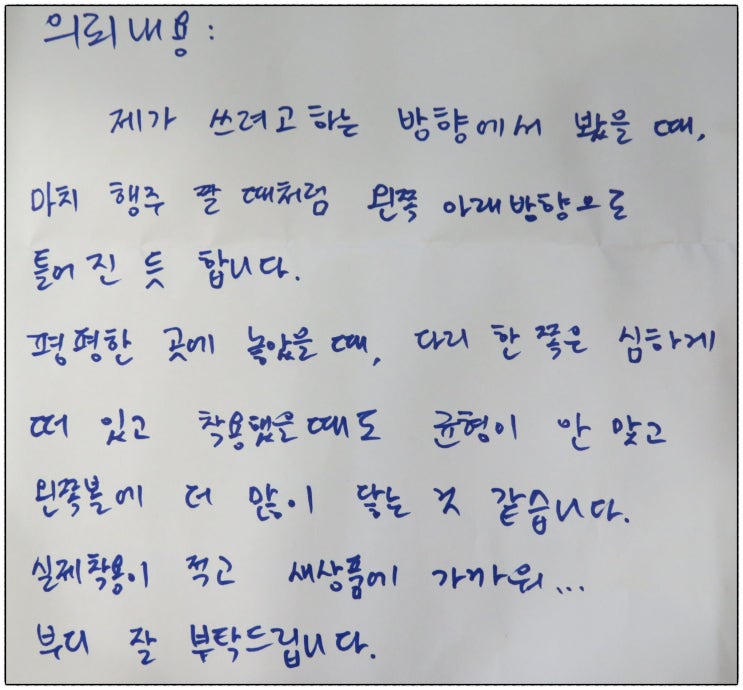 의뢰내용:
제가 쓰려고하는 방향에서 봤을 때,
마치 행주 짤 때처럼 왼쪽 아래방향으로
틀어진 듯 합니다.
평평한 곳에 놓았을 때, 다리 한 쪽은 심하게
떠 있고 착용했을때도 균형이 안 맞고
왼쪽볼에 더 많이 닿는 것 같습니다.
실제착용이 적고 새상품에 가까워...
부디 잘 부탁드립니다.